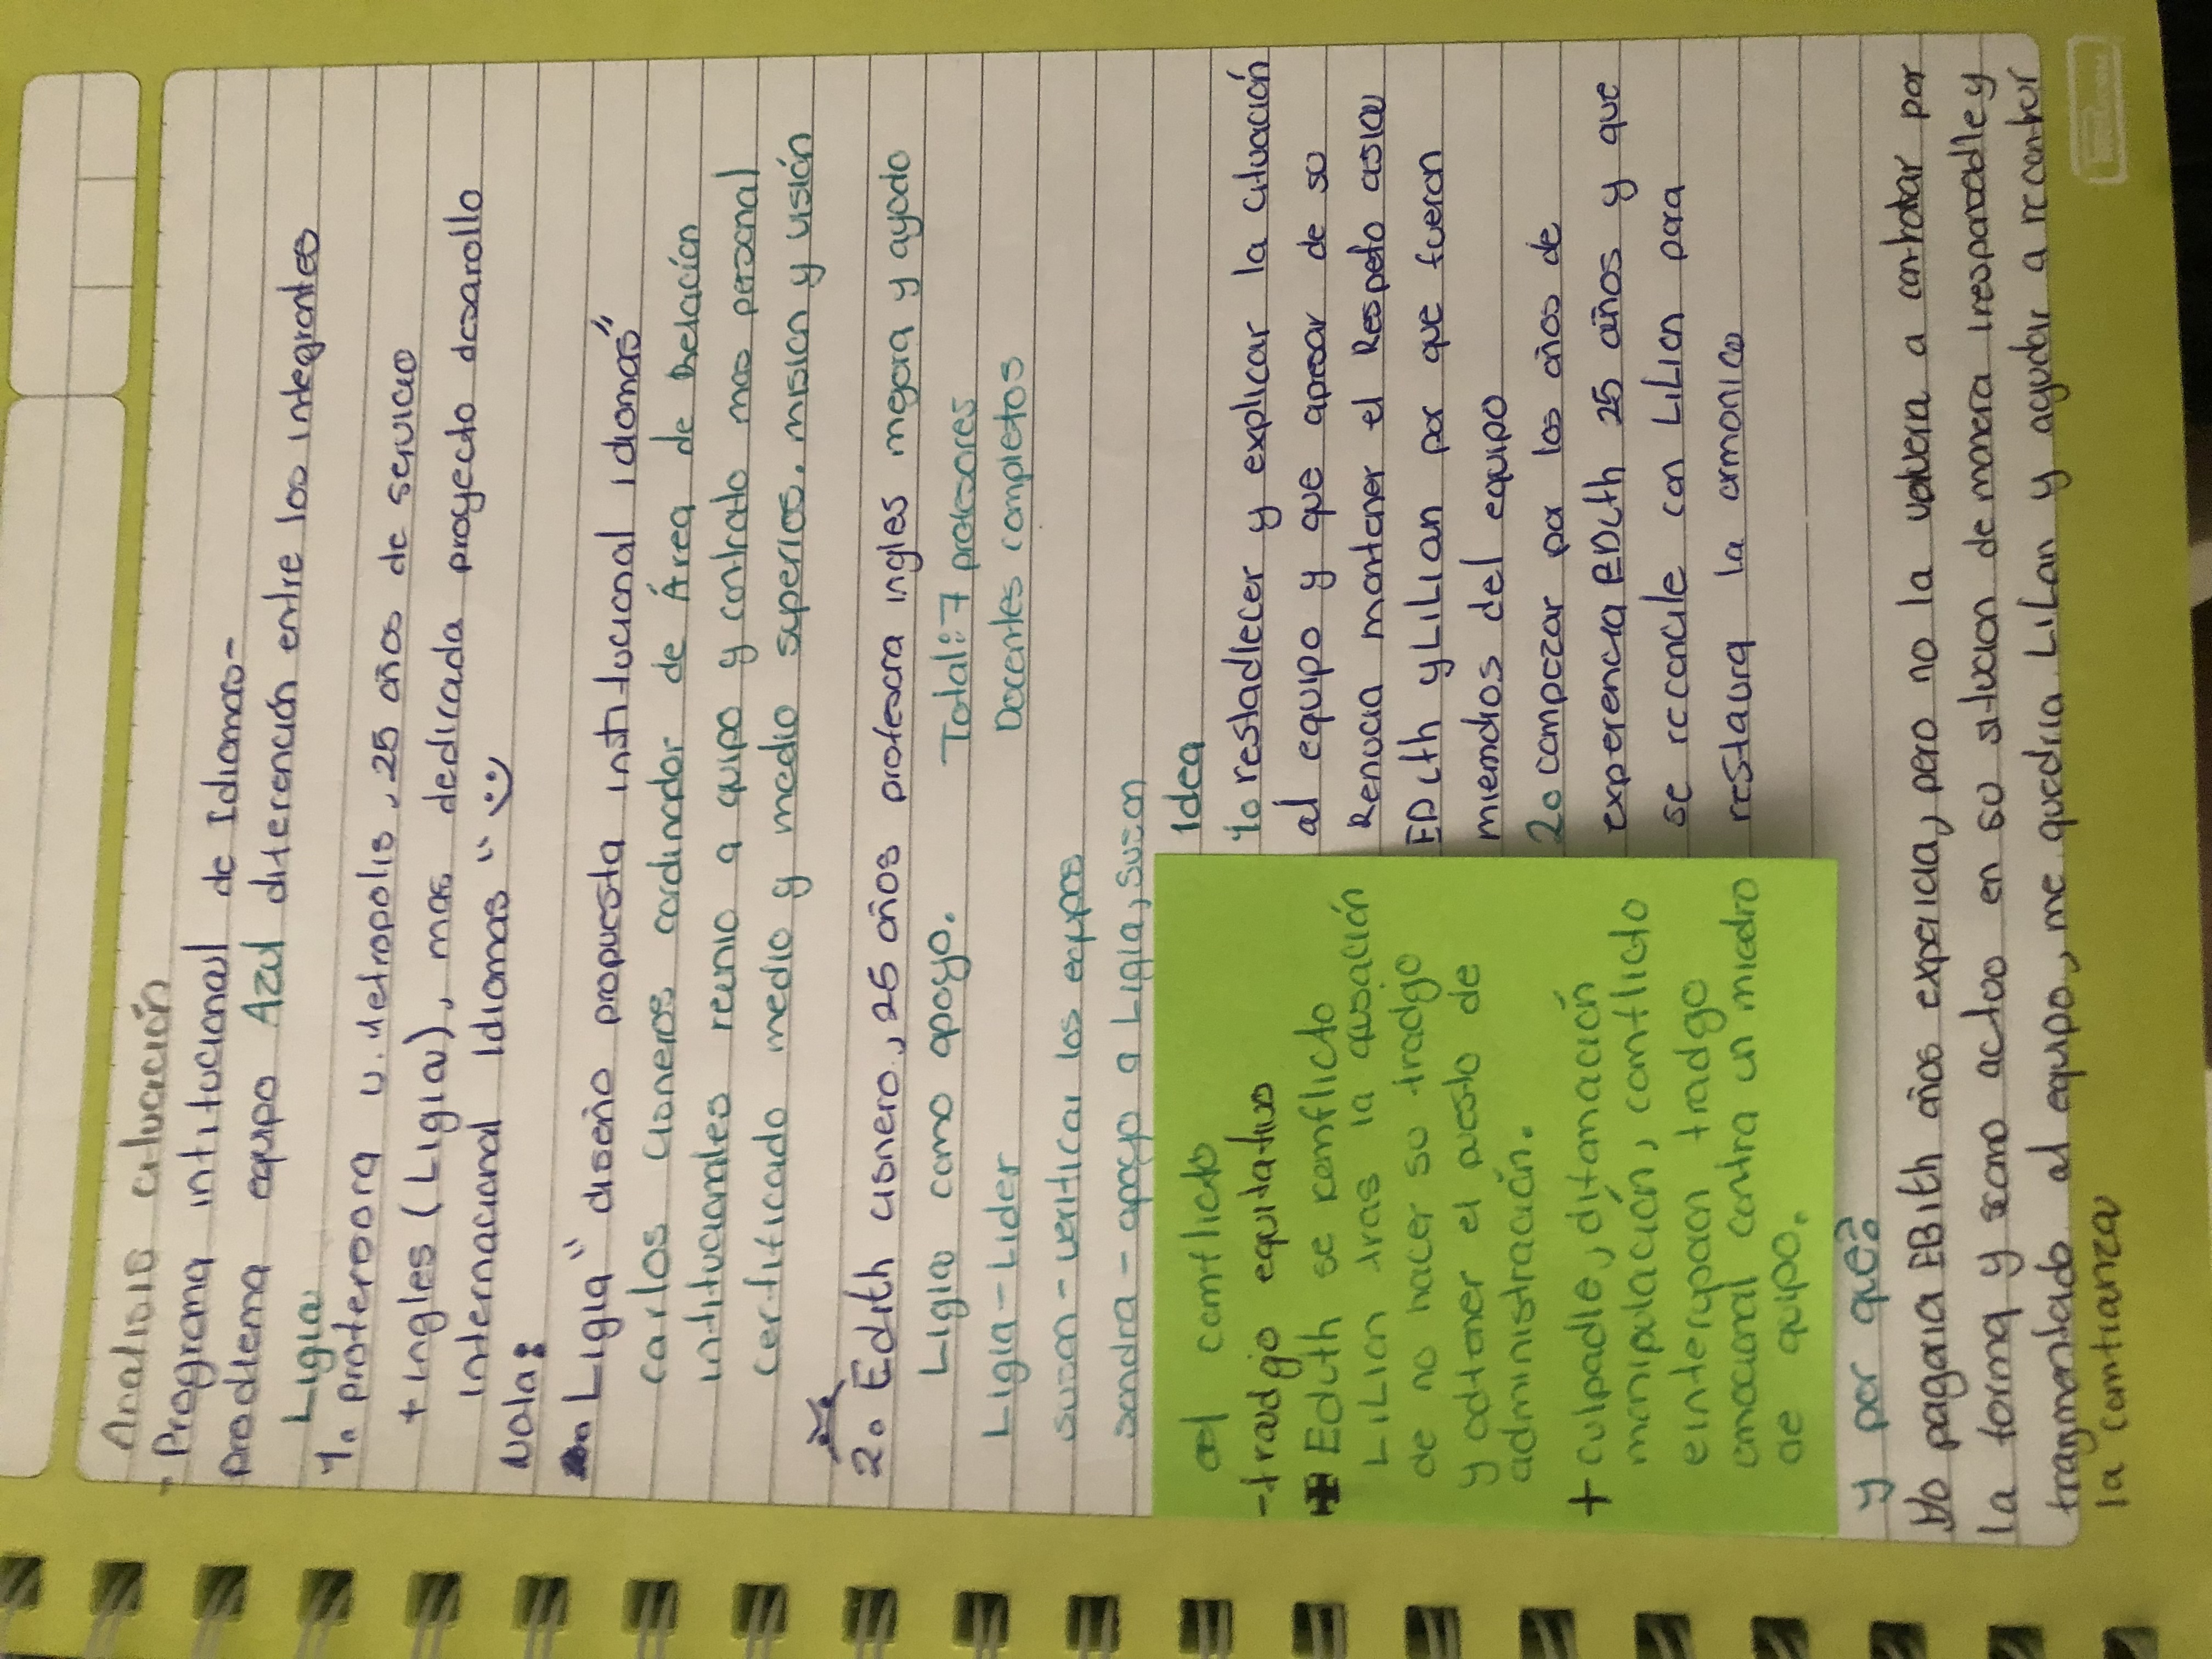 Analisis cituación
- Programa intitucional de Idiomas-
Prodlema equipo Azul diferención entre los integrantes
Ligia
1. profersora u. Metropolis, 25 años de servicio
+ ingles (Ligia), mas dedicada proyecto desarollo
internacional Idiomas" :)
Nota:
Ligia" diseño propuesta institucional idiomas"
carlos cisneros cordinador de Área de
intitucionales reunio a quipo y contrato mas personal
certificado medio y medio superios. mision y visión
2. Edith cisnero, 25 años profescra ingles mejora y ayudo
Ligia como apoyo. Total: 7 profesores
Ligia - Lider Docentes completos
suzan - verificar los equipos
sandra - apoyo a Ligia, suzan
el comflicto
- tradgo equitativo
Eduth se remflicto
Lilian tras la ausación
de no hacer su tradgo
y odtener el puesto de
administración.
+ culpadle, difamación
manipulación, comflicto
einterupaan tradgo
emocianal contra un miedro
de quipo.
Idea
1o restadlecer y explicar la cituación
al equipo y que apesar de su
Renucia mantener el Respeto asia
EDith y LiLian por que fueron
miemdros del equipo
2o compazar por los años de
experencia EDuth 25 años y que
se reconcile con LiLian para
restaura la armonica
y por qué?
No pagaria EBith años expericia, pero no la volvera a contratar por
la forma y scomo actoo en su situcion de manera irresponsadle y
fragmantado al equipo, me quedria LiLan y ayudar a recontrur
la comfianza